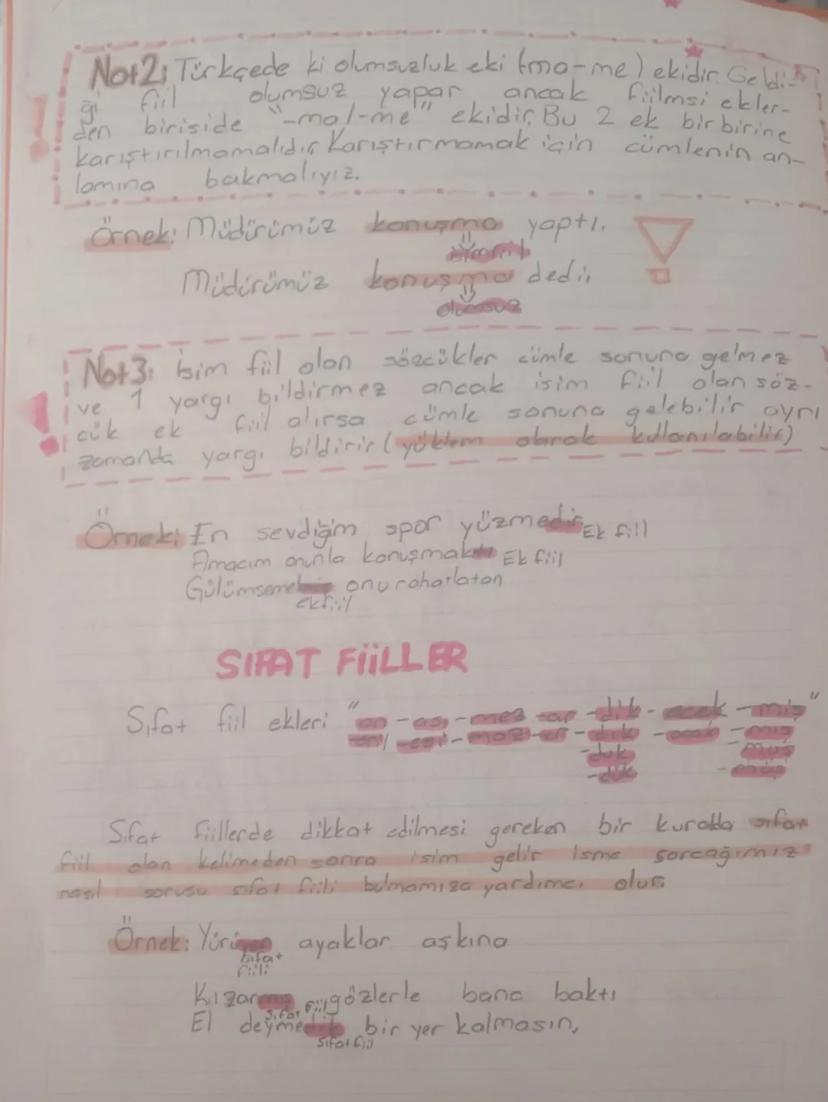 Not2: Türkçede ki olumsuzluk eki (ma-me) ekidir. Geldi-
ği fiil olumsuz yapar ancak fiilmsi ekler-
den biriside "-ma/-me" ekidir. Bu 2 ek birbirine
karıştırılmamalıdır Karıştırmamak için cümlenin an-
lamına bakmalıyız.
Örnek: Müdürümüz konuşma yaptı.
Müdürümüz konuşma dedi.
olumsuz
Not3: İsim fiil olan sözcükler cümle sonuna gelmez
ve 1 yargı bildirmez ancak isim fiil olan söz-
cük ek fiil alırsa cümle sonuna gelebilir aynı
zamanda yargı bildirir (yüklem olarak kullanılabilir)
Örnek: En sevdiğim spor yüzmedir Ek fiil
Amacım onunla konuşmaktı Ek fiil
Gülümsemek onu rahatlatan
ekfiil
SIFAT FiiLLER
Sıfat fiil ekleri "an -ası -mez -ar -dik - ecek -miş"
en/ -esi - maz/ -er - dık - acak - mış
-duk - muş
-dük - müş
Sıfat fiillerde dikkat edilmesi gereken bir kuralda sıfat
fiil olan kelimeden sonra isim gelir isme soracağımız
nasıl sorusu sıfat fiili bulmamıza yardımcı olur.
Örnek: Yürüyen ayaklar aşkına
sıfat
fiili
Kızaran gözlerle bana baktı
sıfat fiil
El deymedik bir yer kalmasın,
sıfat fiil